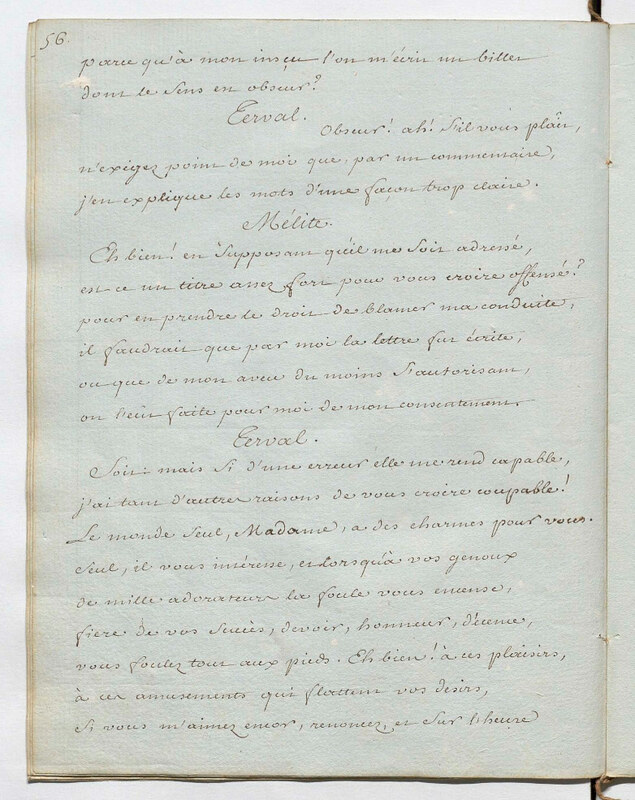 56.
parce qu'à mon insçu l'on m'écrit un billet
dont le sens est obscur?
Terval.
Obscur! ah! s'il vous plaît,
n'exigez point de moi que, par un commentaire,
j'en explique les mots d'une façon trop claire.
Mélite.
Eh bien! en supposant qu'il me soit adressé,
est ce un titre assez fort pour vous croire offensé?
pour en prendre le droit de blamer ma conduite,
il faudrait que par moi la lettre fut écrite,
ou que de mon aveu du moins s'autorisant,
on l'eût faite pour moi de mon consentement.
Terval.
Soit: mais si d'une erreur elle me rend capable,
j'ai tant d'autres raisons de vous croire coupable!
Le monde seul, Madame, a des charmes pour vous.
Seul, il vous intéresse, et lorsqu'à vos genoux
de mille adorateurs la foule vous encense,
fiere de vos succès, devoir, honneur, décence,
vous foulez tout aux pieds. Eh bien! à ces plaisirs,
à ces amusements qui flattent vos désirs,
si vous m'aimez encor, renoncez, et sur l'heure